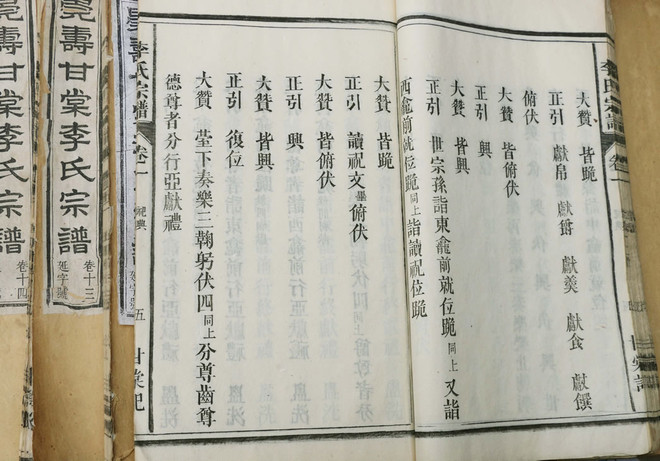 大贊 皆跪
正引 獻帛 獻爵 獻羹 獻食 獻饌
俯伏
大贊 皆俯伏
正引 興
大贊 皆興
正引 世宗孫詣東龕前就位跪同上又詣
西龕前就位跪同上詣讀祝位跪
大贊 皆跪
正引 讀祝文畢俯伏
大贊 皆俯伏
大贊 皆興
正引 復位
大贊 堂下奏樂三鞠躬伏四同上分尊齒尊
德尊者分行亞獻禮
李氏宗譜 卷一 祀典 五 甘棠祀
李氏宗譜 卷一
壽甘棠李氏宗譜 卷十三 延字號
壽甘棠李氏宗譜 卷十四 延字號